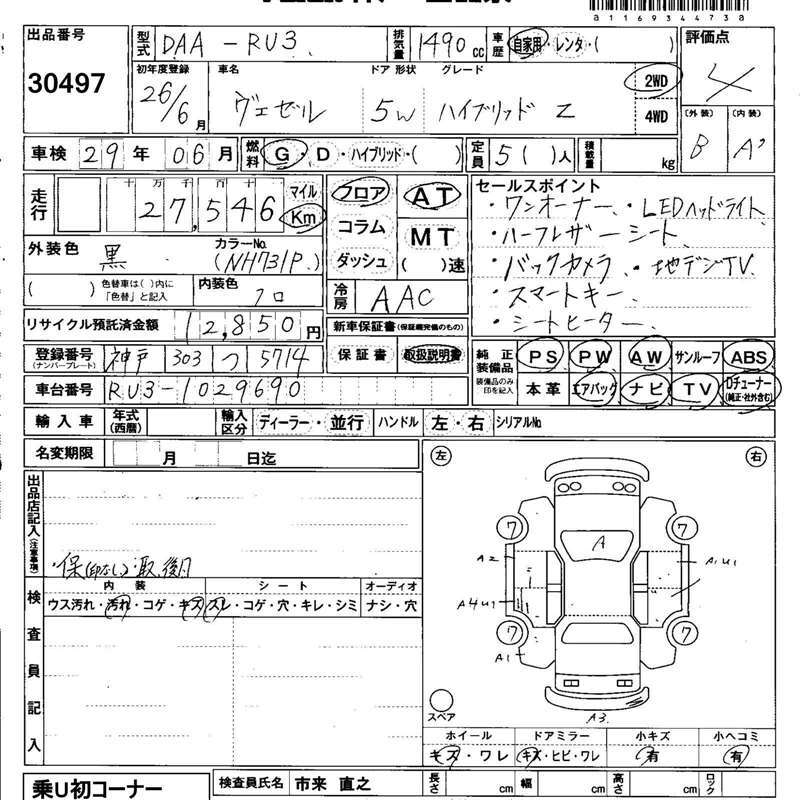 a116934473a
出品番号 型式 DAA-RU3 排気量 1490 cc 車歴 自家用・レンタ・( ) 評価点
30497 初年度登録 車名 ドア 形状 グレード 2WD
26/6月 ヴェゼル 5W ハイブリッド Z 4WD
(外装) (内装)
B A'
車検 29年 06月 燃料 G・D・ハイブリッド・( ) 定員 5( )人 積載量 kg
走行 十 万 千 百 十 マイル フロア AT セールスポイント
27,546 Km ・ワンオーナー、・LEDヘッドライト
コラム MT ・ハーフレザーシート
外装色 黒 カラーNo. (NH731P.) ダッシュ ( )速 ・バックカメラ、・地デジTV
( ) 色替車は( )内に「色替」と記入 内装色 クロ 冷房 AAC ・スマートキー、
・シートヒーター、
リサイクル預託済金額 12,850円 新車保証書(保証継続完備のもの)
保証書 取扱説明書
登録番号(ナンバープレート) 神戸 303 つ 5714 純正装備品 PS PW AW サンルーフ ABS
車台番号 RU3-1029690 装備品のみ印を記入 本革 エアバッグ ナビ TV Dチューナー(純正・社外含む)
輸入車 年式(西暦) 輸入区分 ディーラー・並行 ハンドル 左・右 シリアルNo.
名変期限 月 日迄
左 右
出品店記入(注意事項)
・保(印なし)、取、後日
検査員記入
内装 シート オーディオ
ウス汚れ・汚れ・コゲ・キズ スレ・コゲ・穴・キレ・シミ ナシ・穴
7 7
A
A2 A1U1
A4U1
7 7
A1
スペア A3.
ホイール ドアミラー 小キズ 小ヘコミ
キズ・ワレ キズ・ヒビ・ワレ 有 有
乗U初コーナー 検査員氏名 市来 直之 長さ cm 幅 cm 高さ cm ロック